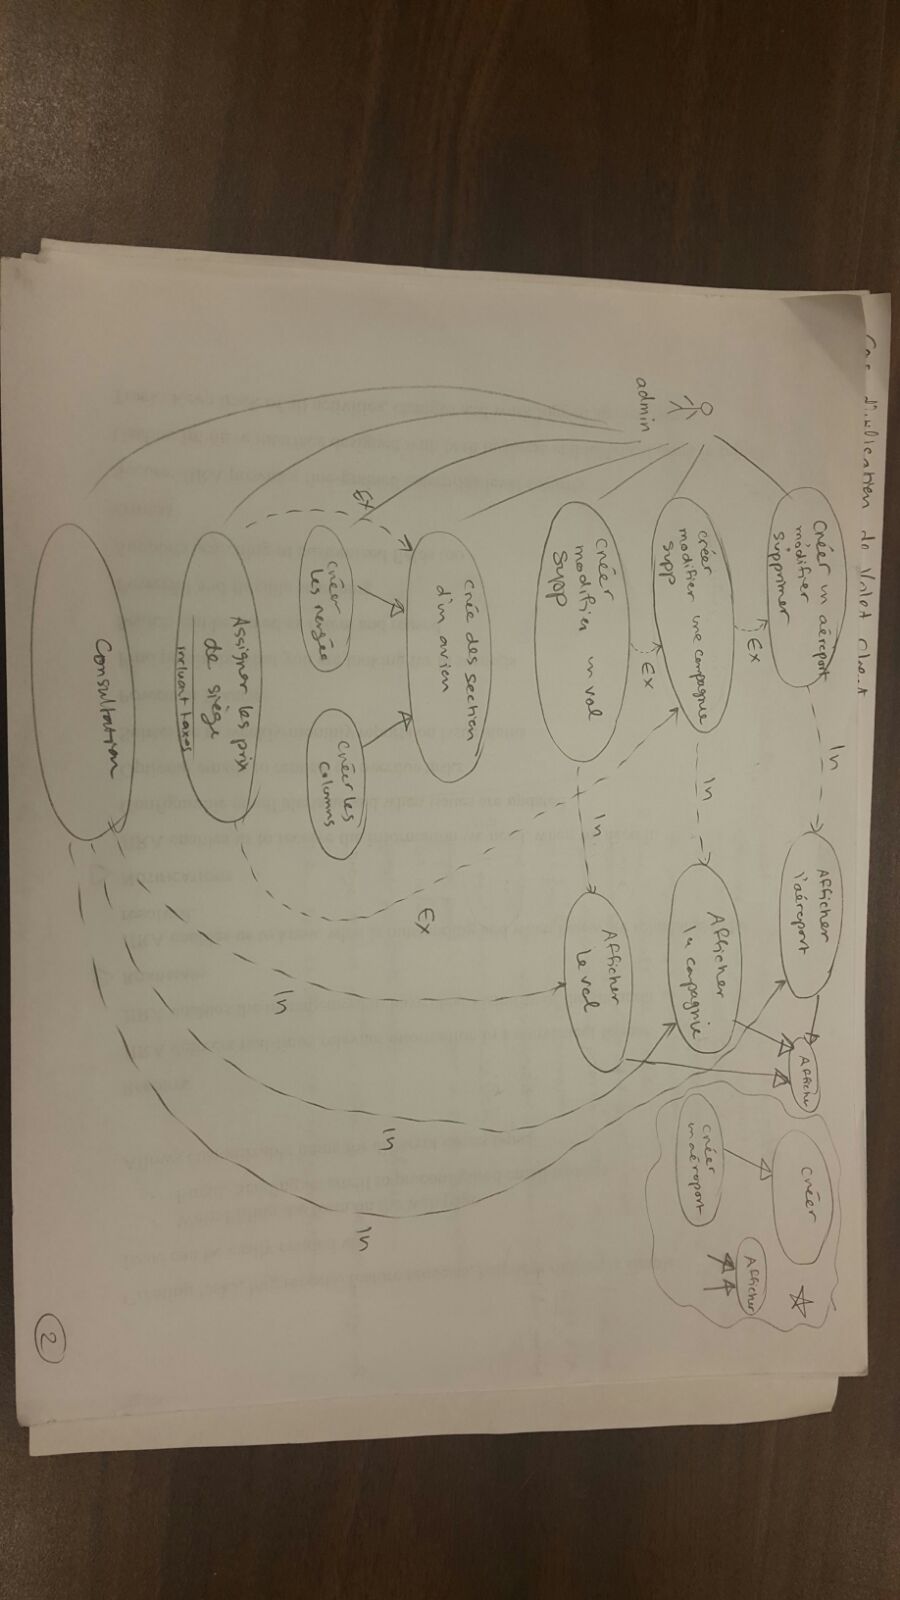 Cas d'uilication de Volet client
Créer un aéroport
modifier
supprimer
In
Afficher
l'aéroport
Afficher
Créer
Afficher
Créer
un aéroport
Ex
créer
modifier une compagnie
supp
In
Afficher
la compagnie
admin
Ex
Créer
modifier un vol
supp
In
Afficher
le vol
Crée des section
d'un avion
Ex
Ex
In
In
Créer
les rengée
Créer les
columns
In
Assigner les prix
de siège
incluant taxes
Consultation
2